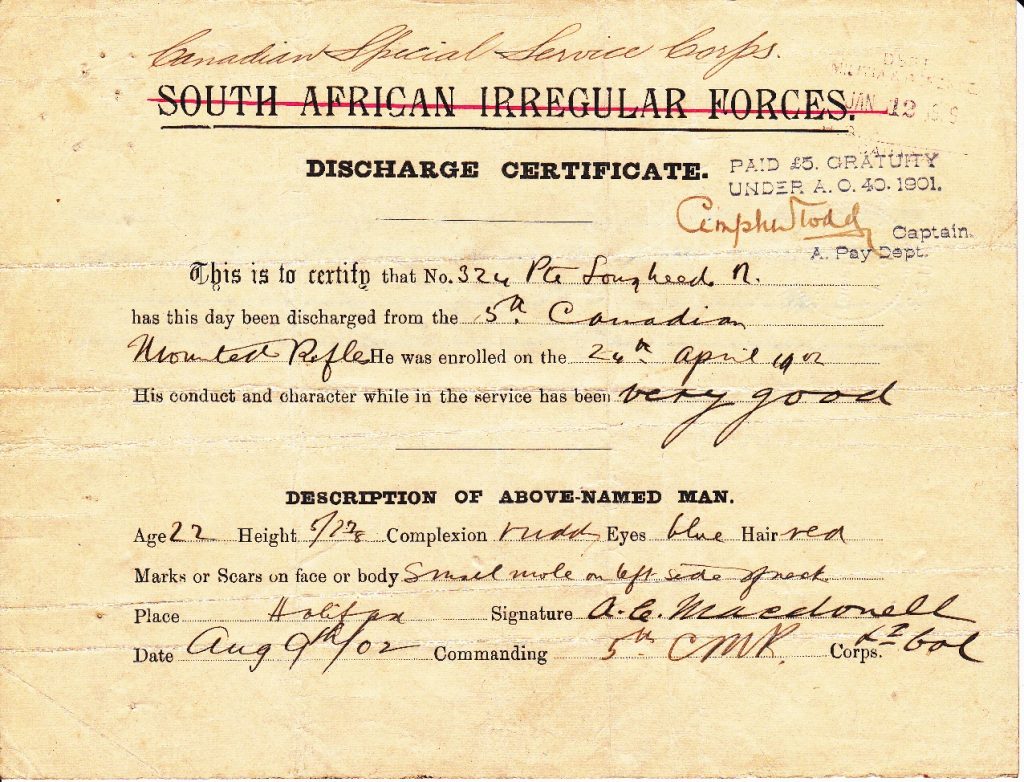 Canadian Special Service Corps.
SOUTH AFRICAN IRREGULAR FORCES.
JAN 12
DISCHARGE CERTIFICATE.
PAID £5. GRATUITY
UNDER A. O. 40. 1901.
Captain.
A. Pay Dept.
This is to certify that No. 324 Pte Lougheed R.
has this day been discharged from the 5th Canadian
Mounted Rifles He was enrolled on the 24th April 1902
His conduct and character while in the service has been very good
DESCRIPTION OF ABOVE-NAMED MAN.
Age 22 Height 5/7 7/8 Complexion ruddy Eyes blue Hair red
Marks or Scars on face or body Small mole on left side of neck
Place Halifax Signature A. C. Macdonell
Date Aug 9th/02 Commanding 5th CMR. Corps. Lt Col